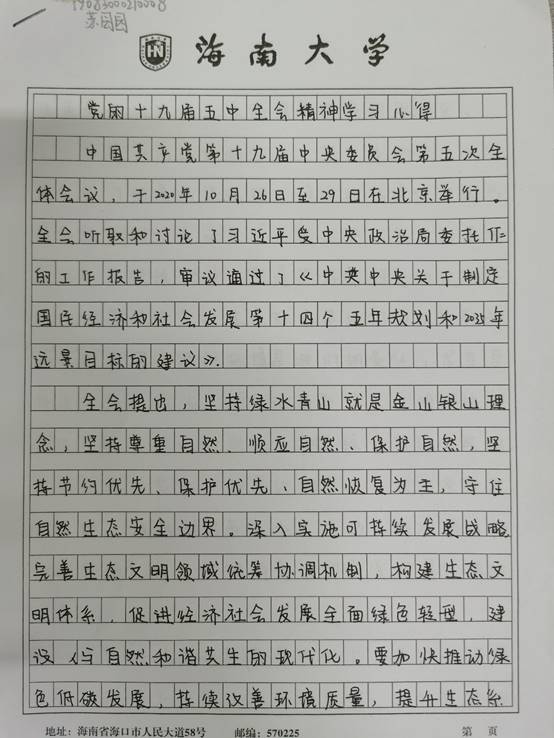 苏园园
海南大学
党的十九届五中全会精神学习心得
中国共产党第十九届中央委员会第五次全
体会议，于2020年10月26日至29日在北京举行。
全会听取和讨论了习近平受中央政治局委托作
的工作报告，审议通过了《中共中央关于制定
国民经济和社会发展第十四个五年规划和2035年
远景目标的建议》.
全会提出，坚持绿水青山就是金山银山理
念，坚持尊重自然、顺应自然、保护自然，坚
持节约优先、保护优先、自然恢复为主，守住
自然生态安全边界。深入实施可持续发展战略
完善生态文明领域统筹协调机制，构建生态文
明体系，促进经济社会发展全面绿色转型，建
设人与自然和谐共生的现代化。要加快推动绿
色低碳发展，持续改善环境质量，提升生态系
地址：海南省海口市人民大道58号 邮编：570225 第 页